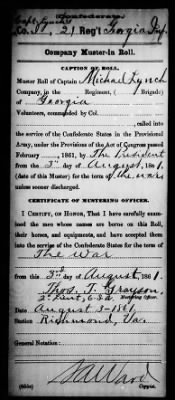 Confederate.
Capt Lynch's
Co. , 21 Reg't Georgia Inf.
Company Muster-in Roll.
CAPTION OF ROLL.
Muster Roll of Captain Michael Lynch
Company, in the Regiment, ( Brigade)
of Georgia
Volunteers, commanded by Col.
, called into
the service of the Confederate States in the Provisional
Army, under the Provisions of the Act of Congress passed
February , 1861, by The President
from the 3rd day of August, 1861,
(date of this Muster) for the term of the war
unless sooner discharged.
CERTIFICATE OF MUSTERING OFFICER.
I CERTIFY, ON HONOR, That I have carefully examined
the men whose names are borne on this Roll,
their horses, and equipments, and have accepted them
into the service of the Confederate States for the term of
The War
from this 3rd day of August, 1861.
Thos. T. Grayson,
2d Lieut, C.S.A. Mustering Officer.
Date August 3-1861
Station Richmond, Va.
General Notation:
Ward
Copyist.